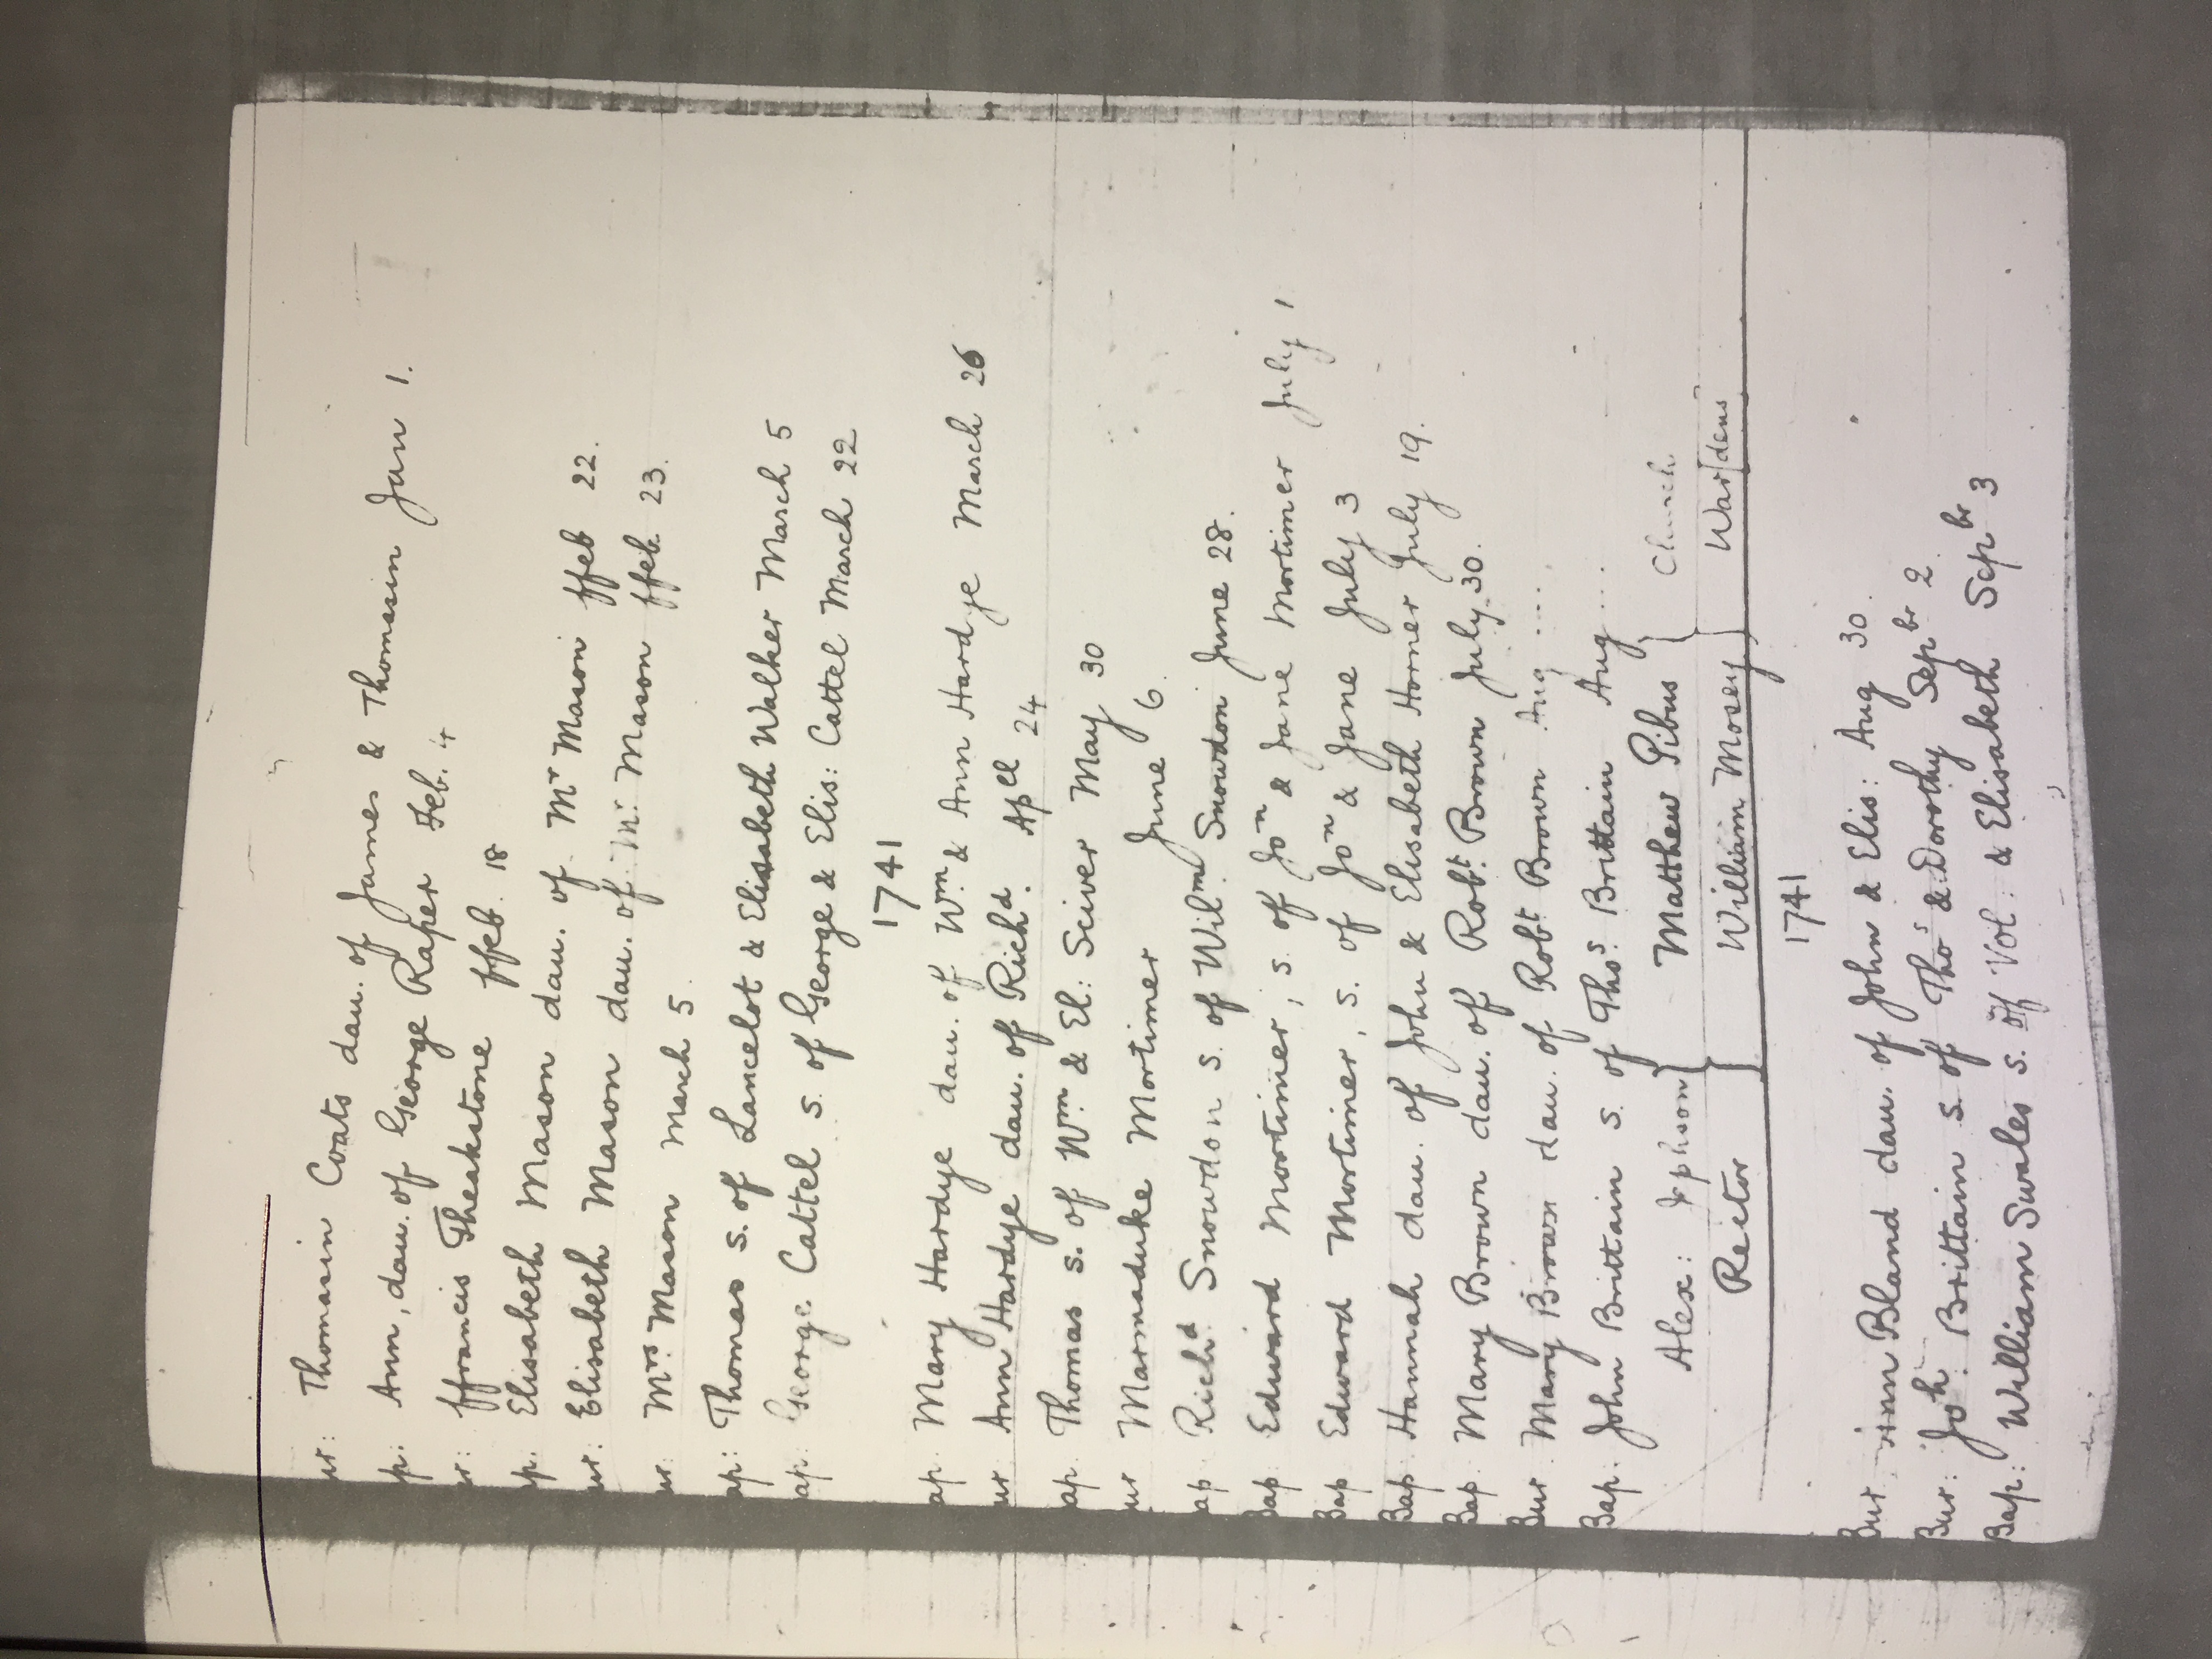 ur: Thomasin Coats dau. of James & Thomasin Jan 1.
ap: Ann, dau. of George Raper Feb. 4
ur: ffrancis Theakstone ffeb. 18
ap. Elisabeth Mason dau. of Mr Mason ffeb 22.
ur: Elisabeth Mason dau. of Mr. Mason ffeb. 23.
ur. Mrs. Mason March 5.
ap: Thomas s. of Lancelot & Elisabeth Walker March 5
ap. George Cattel s. of George & Elis: Cattel March 22
1741
ap. Mary Hardye dau. of Wm. & Ann Hardye March 26
ur Ann Hardye dau. of Richd. Apll 24
ap. Thomas s. of Wm. & El: Sciver May 30
ur Marmaduke Mortimer June 6.
ap Richd. Snowdon s. of Wilm. Snowdon June 28.
Bap. Edward Mortimer, s. of Jon & Jane Mortimer July 1
Bap Edward Mortimer, s. of Jon & Jane July 3
Bap. Hannah dau. of John & Elisabeth Horner July 19.
Bap. Mary Brown dau. of Robt. Brown July 30.
Bur. Mary Brown dau. of Robt Brown Aug ....
Bap: John Brittain s. of Thos. Brittain Aug ....
Alex: Matthew Pibus Church
Rector William Mosey War[dens
1741
Bur. Ann Bland dau. of John & Elis: Aug 30.
Bur: Joh: Brittain s. of Thos & Dorothy Sepbr 2.
Bap: William Swales s. of Vol: & Elisabeth Sepbr 3